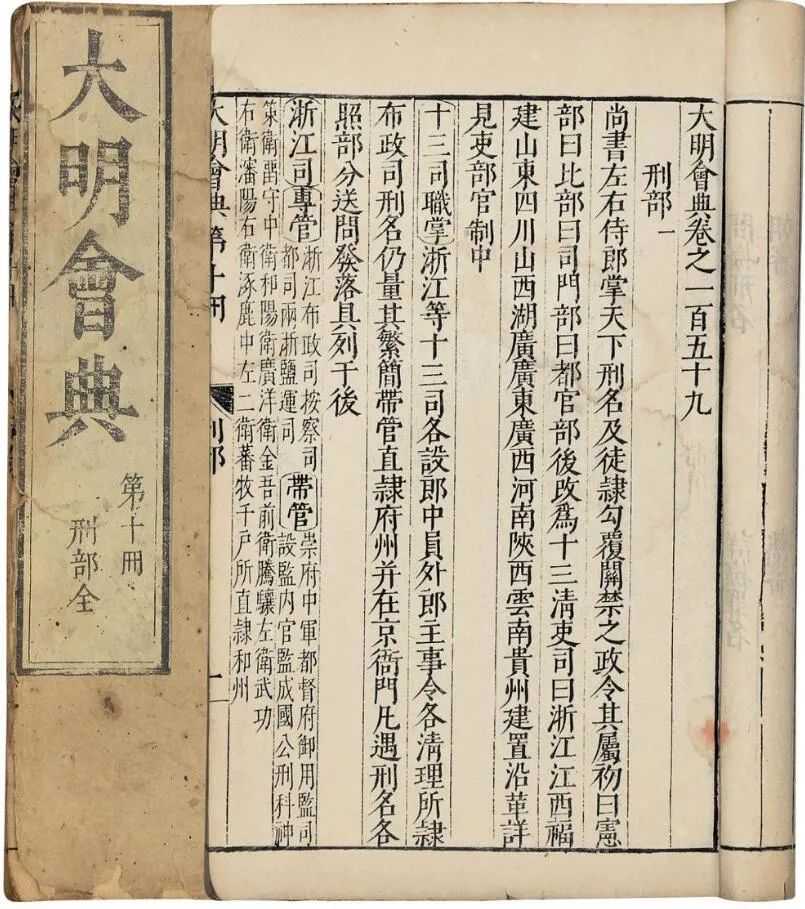 大明會典卷之一百五十九
刑部一
尚書左右侍郎掌天下刑名及徒隷勾覆關禁之政令其屬初曰憲
部曰比部曰司門部曰都官部後改爲十三清吏司曰浙江江西福
建山東四川山西湖廣廣東廣西河南陝西雲南貴州建置沿革詳
見吏部官制中
十三司職掌浙江等十三司各設郎中員外郎主事令各清理所隷
布政司刑名仍量其繁簡帶管直隷府州并在京衙門凡遇刑名各
照部分送問發落具列于後
浙江司專管
浙江布政司按察司
都司兩浙鹽運司
帶管
崇府中軍都督府御用監司
設監内官監成國公刑科神
策衛留守中衛和陽衛廣洋衛金吾前衛騰驤左衛武功
右衛瀋陽右衛涿鹿中左二衛蕃牧千戶所直隷和州
大明會典第十冊
刑部
大明會典
第十冊
刑部全